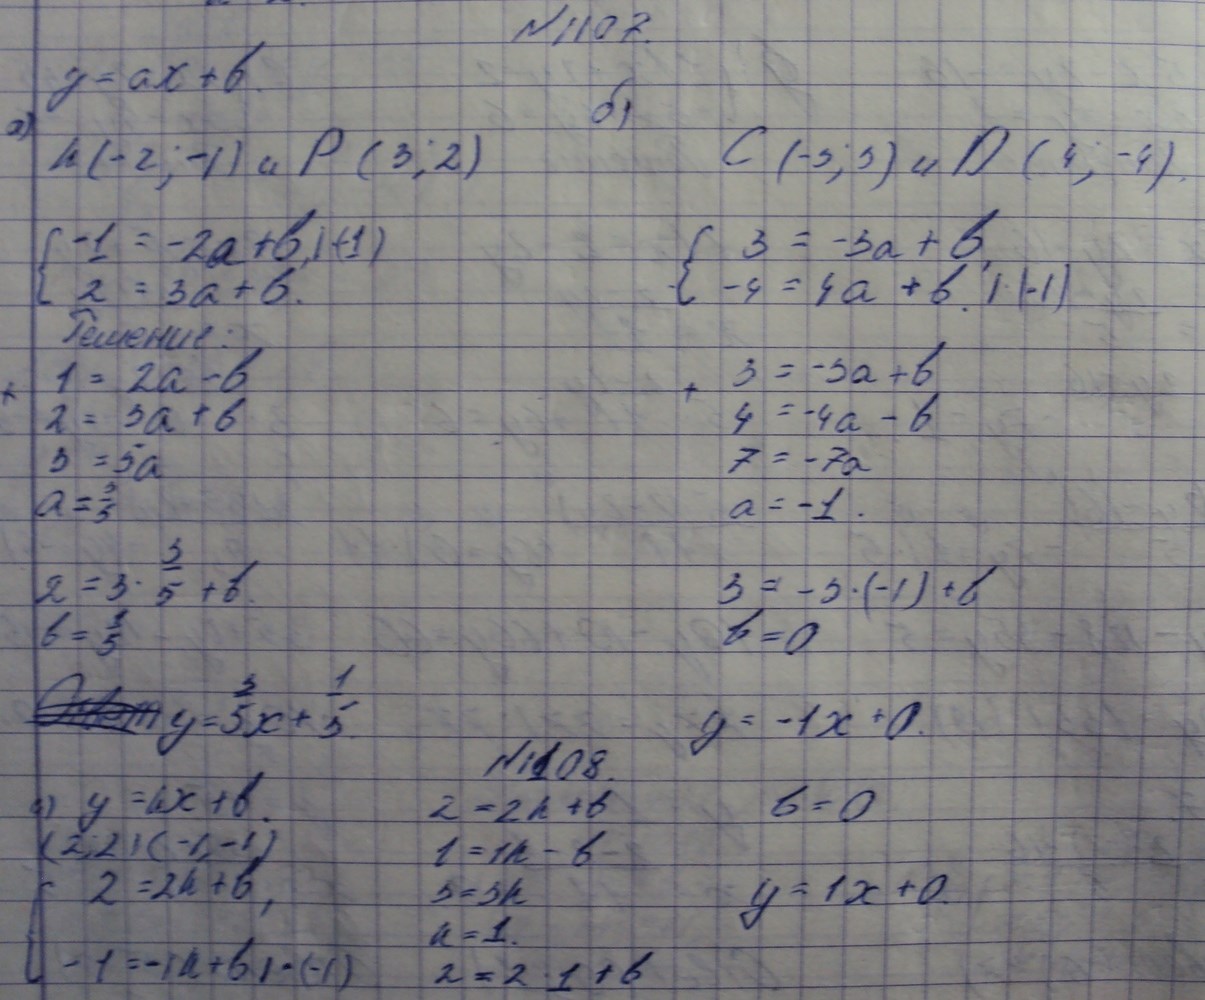 №1107.
y = ax + b.
а)
K (-2; -1) и P (3; 2)
{ -1 = -2a + b, | (-1)
2 = 3a + b.
Решение:
+ 1 = 2a - b
2 = 3a + b
3 = 5a
a = 3/5
2 = 3 · 3/5 + b.
b = 1/5
y = 3/5 x + 1/5.
б)
C (-3; 3) и D (4; -4).
{ 3 = -3a + b,
-4 = 4a + b. | · (-1)
+ 3 = -3a + b
4 = -4a - b
7 = -7a
a = -1.
3 = -3 · (-1) + b
b = 0
y = -1x + 0.
№1108.
а) y = kx + b.
(2; 2) (-1; -1)
{ 2 = 2k + b,
-1 = -1k + b | · (-1)
2 = 2k + b
1 = 1k - b
3 = 3k
k = 1.
2 = 2 · 1 + b
b = 0
y = 1x + 0.